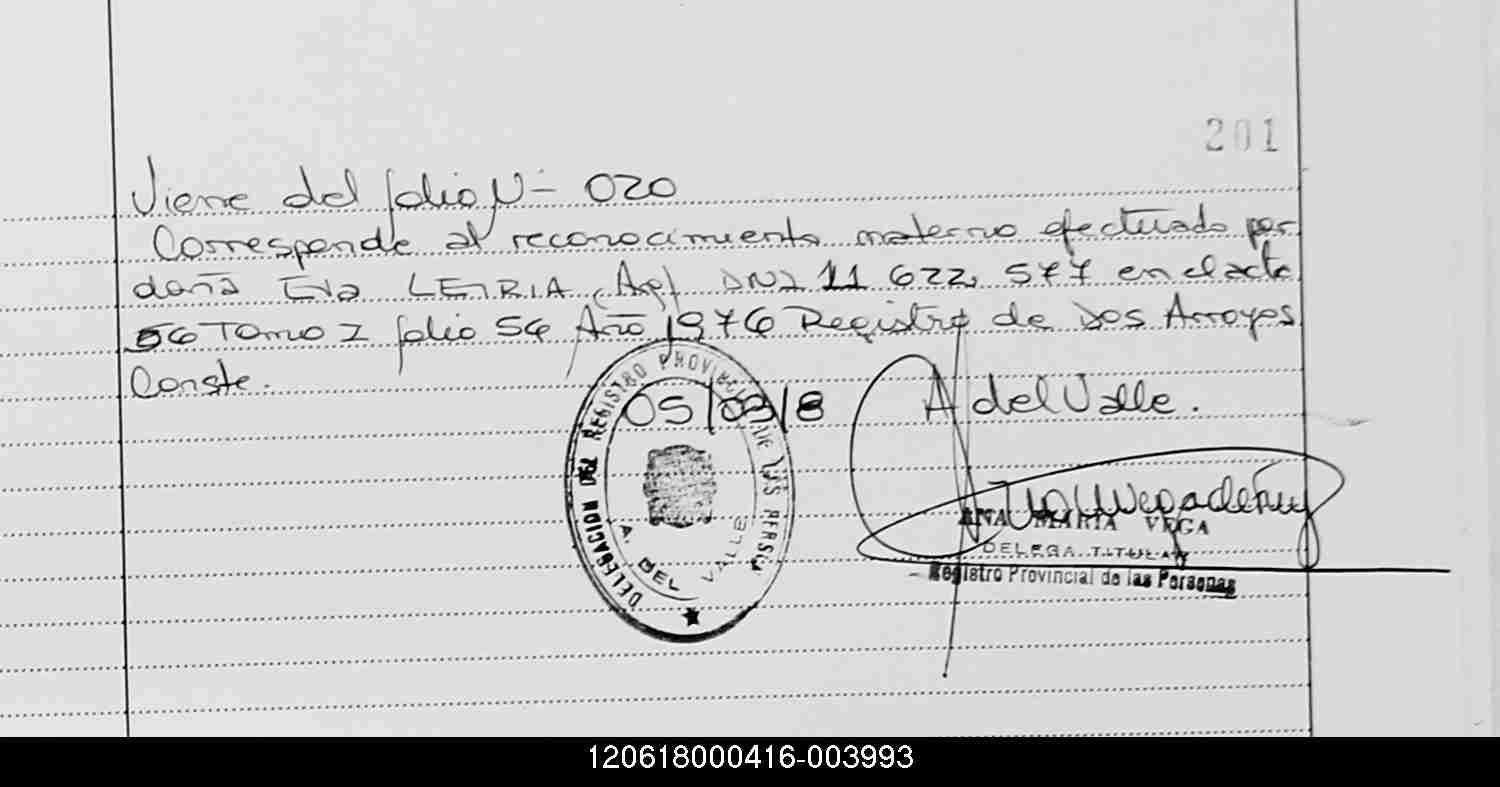 201
Viene del folio N- 020
Corresponde al reconocimiento materno efectuado por
doña Eva LEIRIA (Arg) DNI 11 622, 577 en el acta
56 Tomo I folio 56 Año 1976 Registro de Dos Arroyos
Conste.
05/03/8 A del Valle.
DELEGACION DEL REGISTRO PROVINCIAL DE LAS PERSONAS
A. DEL VALLE
ANA MARIA VEGA
DELEGA TITULAR
Registro Provincial de las Personas
120618000416-003993